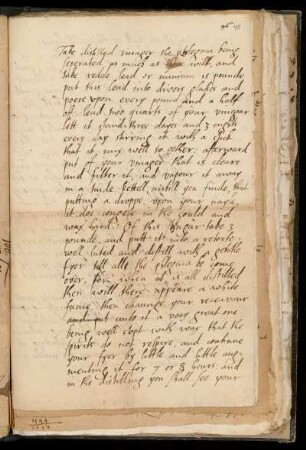 Take distilled vinager the flegma being
seperated as much as thou wilt, and
take redde lead or minium 12 pounds
put this lead into divers glasses and
poore upon every pound and a half
of lead two quarts of your vinegar
lett it stand three dayes and 3 nights
every day stirring it with a stick
that it, mixe well to gether, afterward
put of your vinager that is cleare
and filter it, and vapour it away
in a kettell, untill you finde, that
putting a droppe upon your nayle
it doe congele in the could and
waxe hard. Of this take 3
pounds, and putt it into a retorte
well luted and distill with a gentle
fyer till all the flegma be come
over, when it is all distilled
then will there appeare a white
fume then chaunge your receavour
unto it a very great one
being well clept with waxe that the
spirits do not respire, and continue
your fyer by little and little aug-
menting it for 7 or 8 hours: and
in the distilling you shall see your